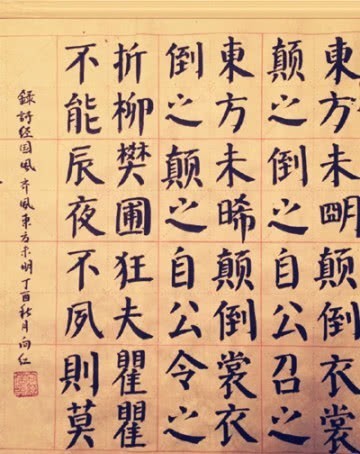 東方未明顛倒衣裳
顛之倒之自公召之
東方未晞顛倒裳衣
倒之顛之自公令之
折柳樊圃狂夫瞿瞿
不能辰夜不夙則莫
錄詩经国風齐風東方未明丁酉秋月向红